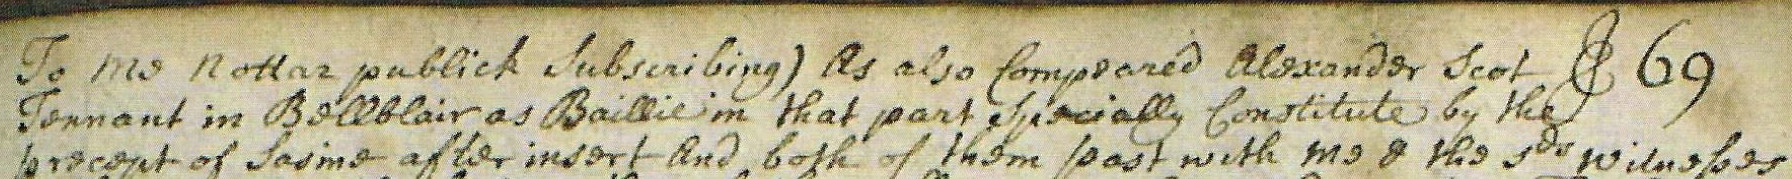 To me Nottar publick Subscribing) As also Compeared Alexander Scot 69
Tennant in Bellblair as Baillie in that part specially Constitute by the
precept of Sasine after insert And both of them past with me & the sds witnesses